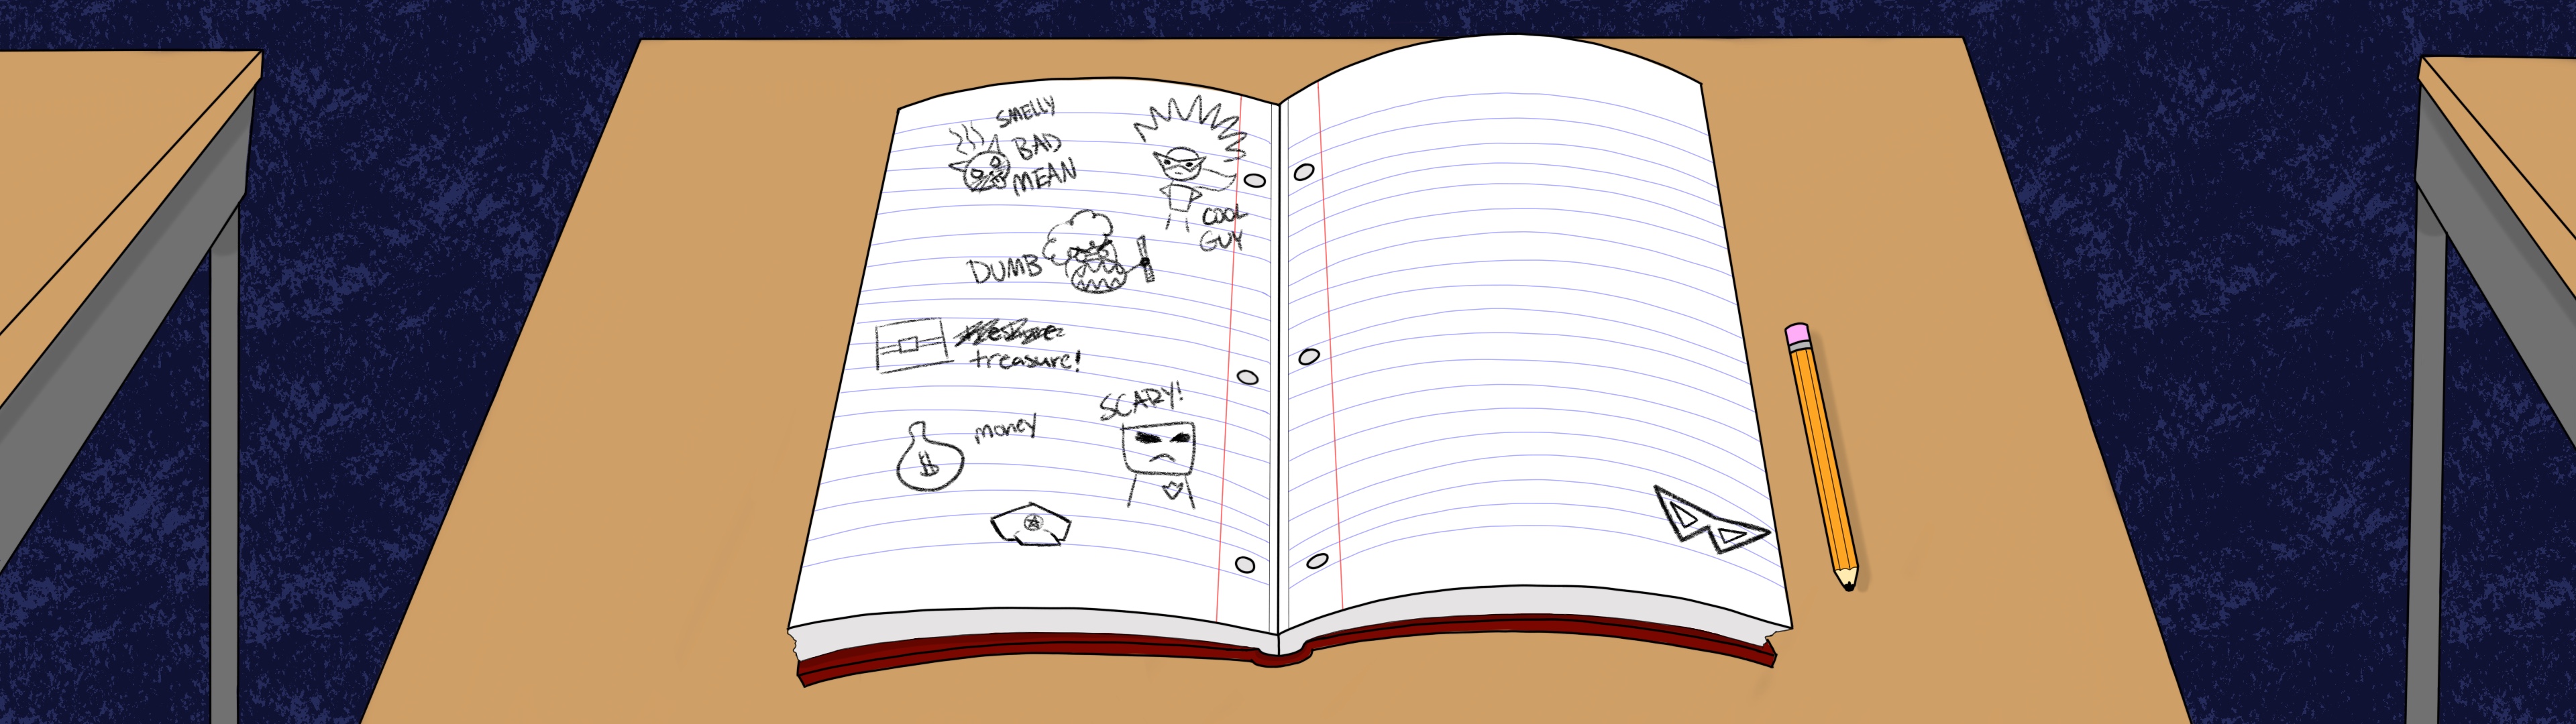 SMELLY
BAD
MEAN
COOL
GUY
DUMB
treasure!
SCARY!
money
$